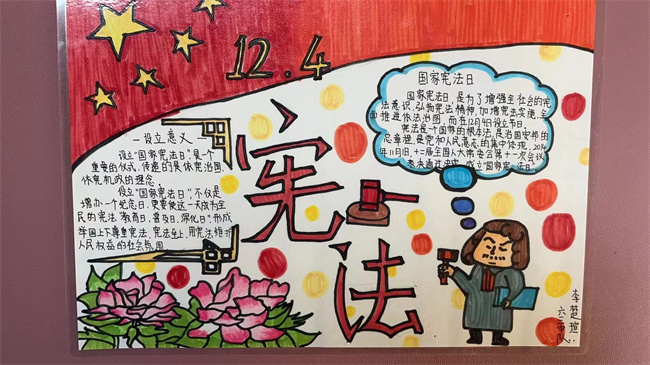 12.4
国家宪法日
国家宪法日,是为了增强全社会的宪
法意识,弘扬宪法精神,加强宪法实施,全
面推进依法治国,而在12月4日设立节日。
宪法是一个国家的根本法,是治国安邦的
总章程,是党和人民意志的集中体现,2014
年11月1日,十二届全国人大常委会第十一次会议
表决通过决定,成立"国家宪法日"
一设立意义
设立"国家宪法日",是一个
重要的仪式,传递的是依宪治国,
依宪执政的理念。
设立"国家宪法日",不仅是
增加一个纪念日,更要使这一天成为全
民的宪法"教育日、普及日、深化日",形成
举国上下尊重宪法、宪法至上、用宪法维护
人民权益的社会氛围
宪法
李楚瑄